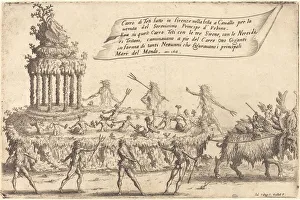 Carro di Teti fatto in Firenze nella festa a Cavallo per la
venuta del Serenissimo Principe d' Urbino.
Era in questo Carro Teti con le sue Sirene, con le Nereidi,
e Tritoni, camminavano a pie del Carro otto Giganti
in forma di tanti Nettunni che figuravano i principali
Mari del Mondo.